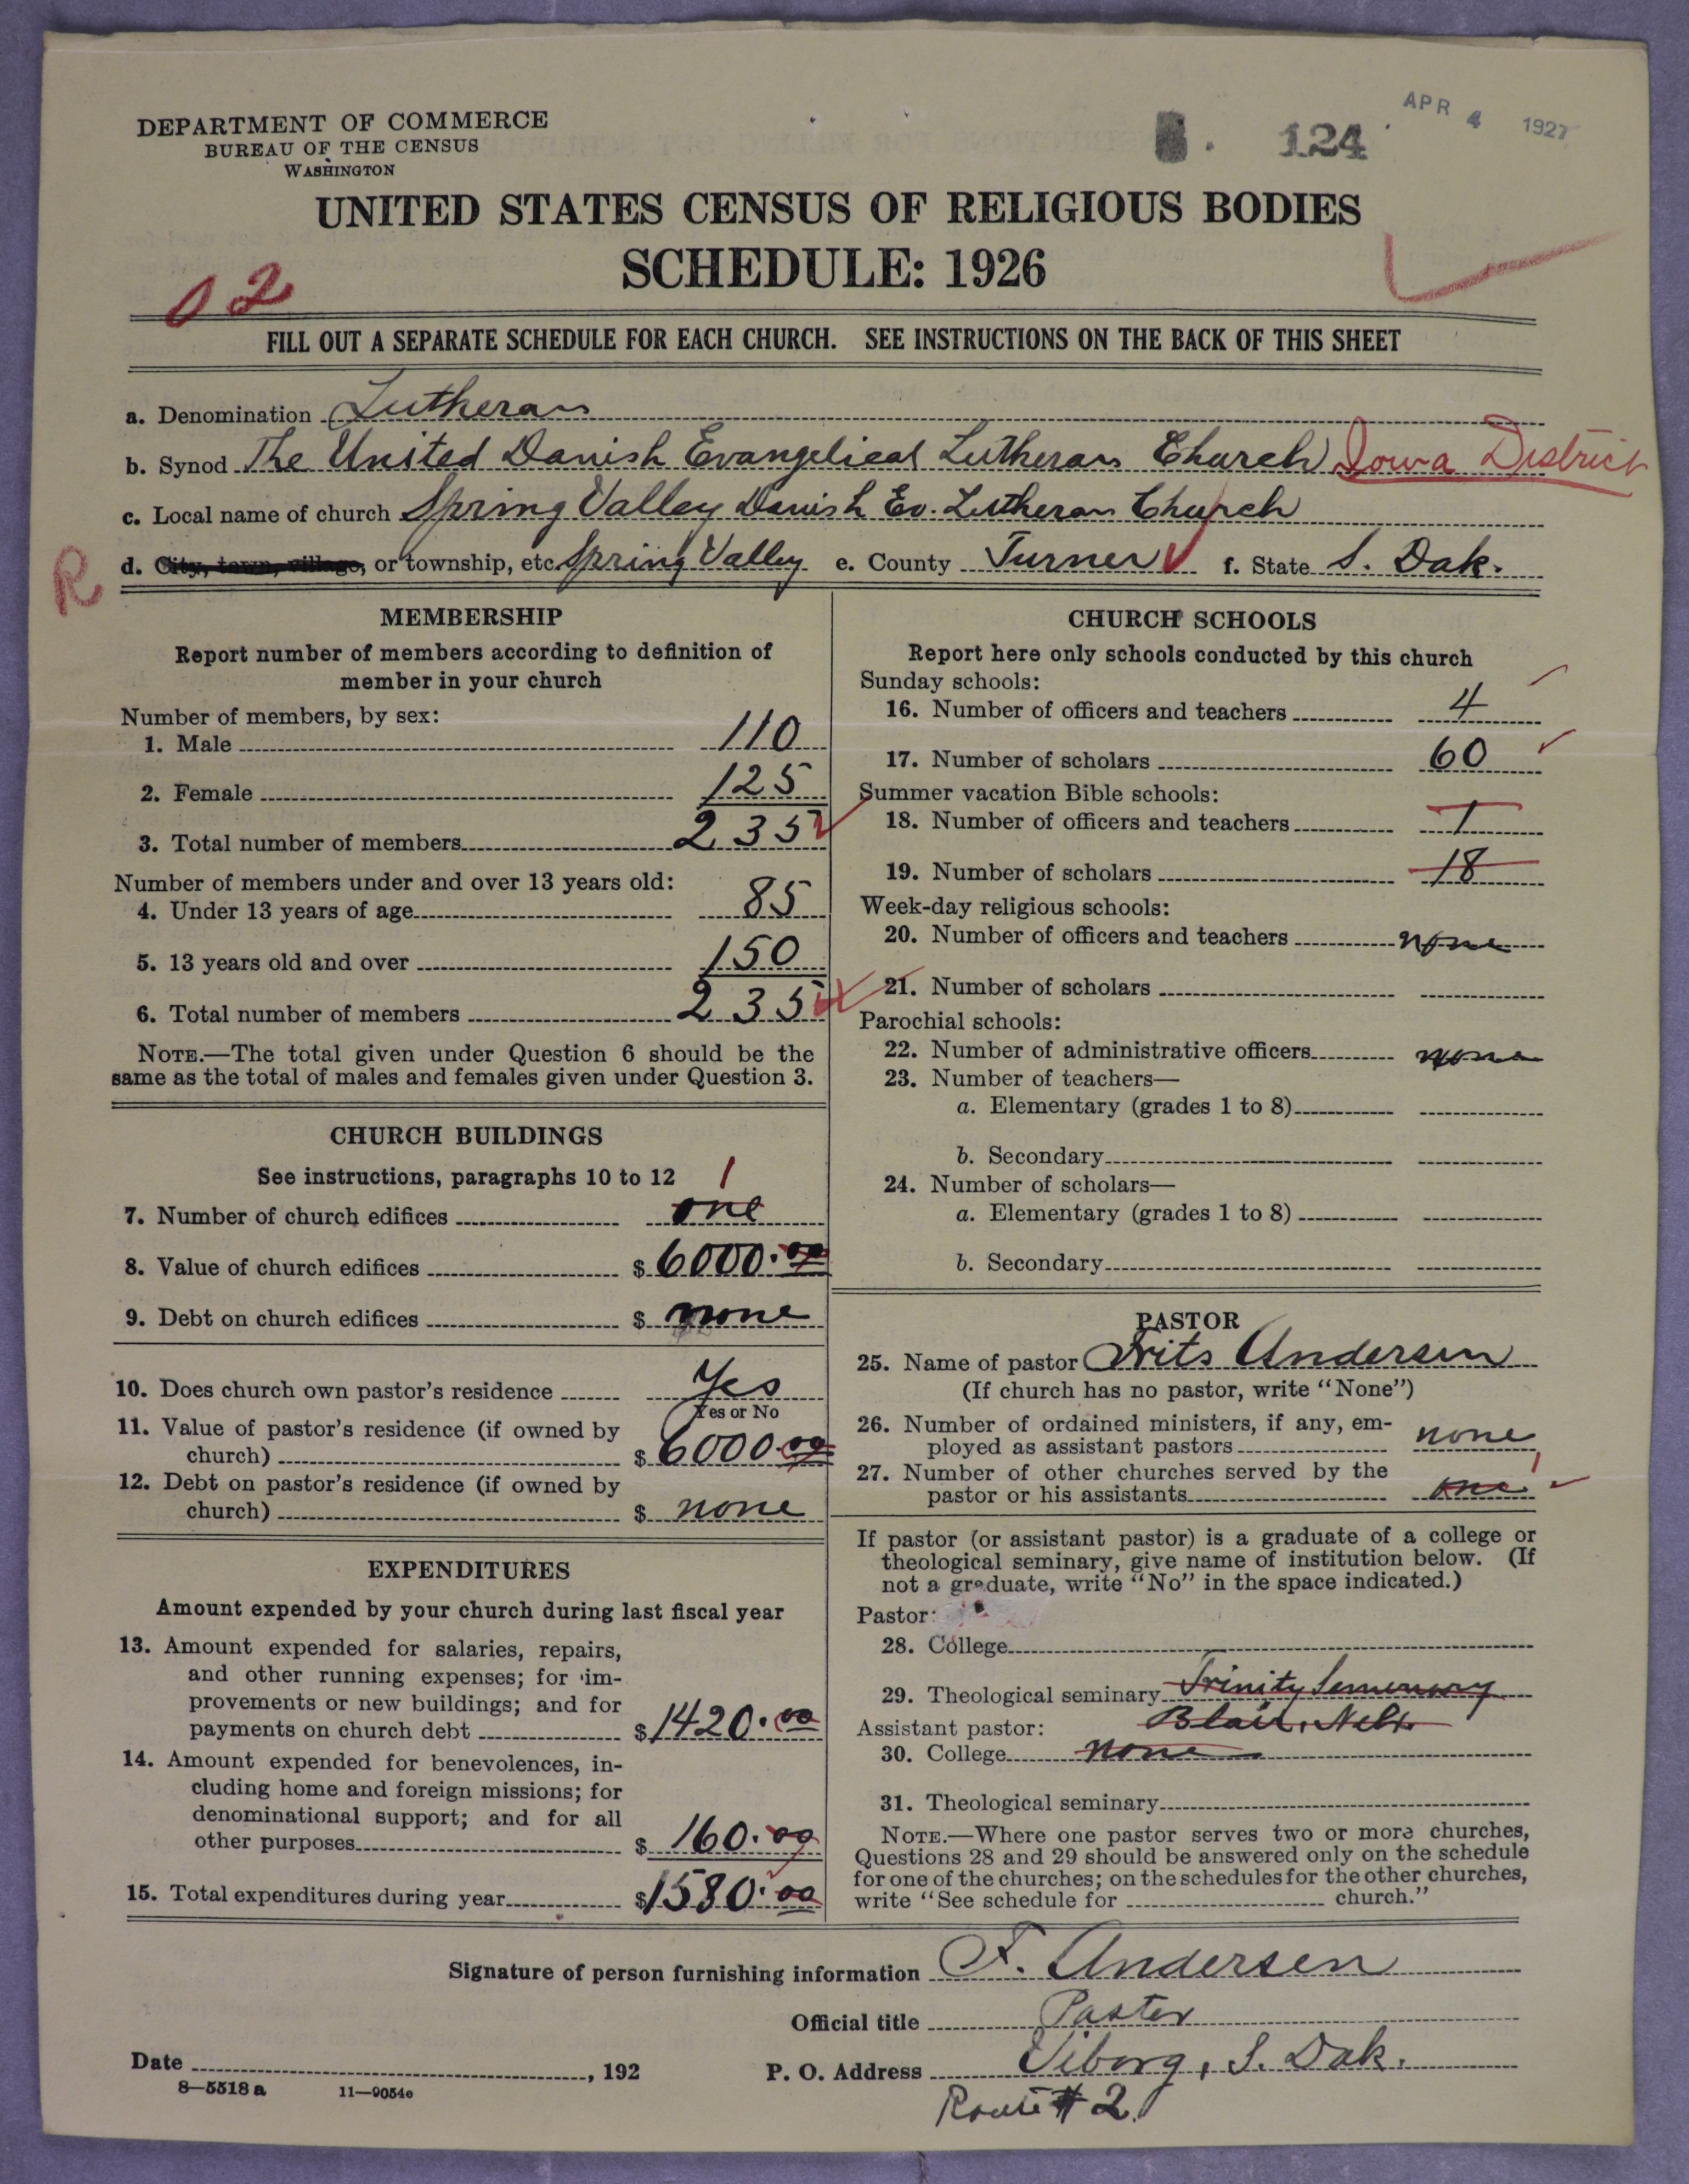 DEPARTMENT OF COMMERCE
BUREAU OF THE CENSUS
WASHINGTON
124
APR 4 1927
UNITED STATES CENSUS OF RELIGIOUS BODIES
SCHEDULE: 1926
02
FILL OUT A SEPARATE SCHEDULE FOR EACH CHURCH. SEE INSTRUCTIONS ON THE BACK OF THIS SHEET
a. Denomination Lutheran
b. Synod The United Danish Evangelical Lutheran Church Iowa District
c. Local name of church Spring Valley Danish Ev. Lutheran Church
R d. City, town, village, or township, etc Spring Valley e. County Turner f. State S. Dak.
MEMBERSHIP
Report number of members according to definition of
member in your church
Number of members, by sex:
1. Male 110
2. Female 125
3. Total number of members 235
Number of members under and over 13 years old:
4. Under 13 years of age 85
5. 13 years old and over 150
6. Total number of members 235
NOTE.—The total given under Question 6 should be the
same as the total of males and females given under Question 3.
CHURCH BUILDINGS
See instructions, paragraphs 10 to 12 1
7. Number of church edifices one
8. Value of church edifices $ 6000.00
9. Debt on church edifices $ none
10. Does church own pastor's residence Yes
Yes or No
11. Value of pastor's residence (if owned by
church) $ 6000.00
12. Debt on pastor's residence (if owned by
church) $ none
EXPENDITURES
Amount expended by your church during last fiscal year
13. Amount expended for salaries, repairs,
and other running expenses; for im-
provements or new buildings; and for
payments on church debt $ 1420.00
14. Amount expended for benevolences, in-
cluding home and foreign missions; for
denominational support; and for all
other purposes $ 160.00
15. Total expenditures during year $ 1580.00
CHURCH SCHOOLS
Report here only schools conducted by this church
Sunday schools:
16. Number of officers and teachers 4
17. Number of scholars 60
Summer vacation Bible schools:
18. Number of officers and teachers 1
19. Number of scholars 18
Week-day religious schools:
20. Number of officers and teachers none
21. Number of scholars
Parochial schools:
22. Number of administrative officers none
23. Number of teachers—
a. Elementary (grades 1 to 8)
b. Secondary
24. Number of scholars—
a. Elementary (grades 1 to 8)
b. Secondary
PASTOR
25. Name of pastor Frits Andersen
(If church has no pastor, write "None")
26. Number of ordained ministers, if any, em-
ployed as assistant pastors none
27. Number of other churches served by the 1
pastor or his assistants one
If pastor (or assistant pastor) is a graduate of a college or
theological seminary, give name of institution below. (If
not a graduate, write "No" in the space indicated.)
Pastor:
28. College
29. Theological seminary Trinity Seminary
Blair, Nebr.
Assistant pastor:
30. College none
31. Theological seminary
NOTE.—Where one pastor serves two or more churches,
Questions 28 and 29 should be answered only on the schedule
for one of the churches; on the schedules for the other churches,
write "See schedule for church."
Signature of person furnishing information F. Andersen
Official title Pastor
Date , 192
P. O. Address Viborg, S. Dak.
Route # 2.
8—5518 a 11—9054e